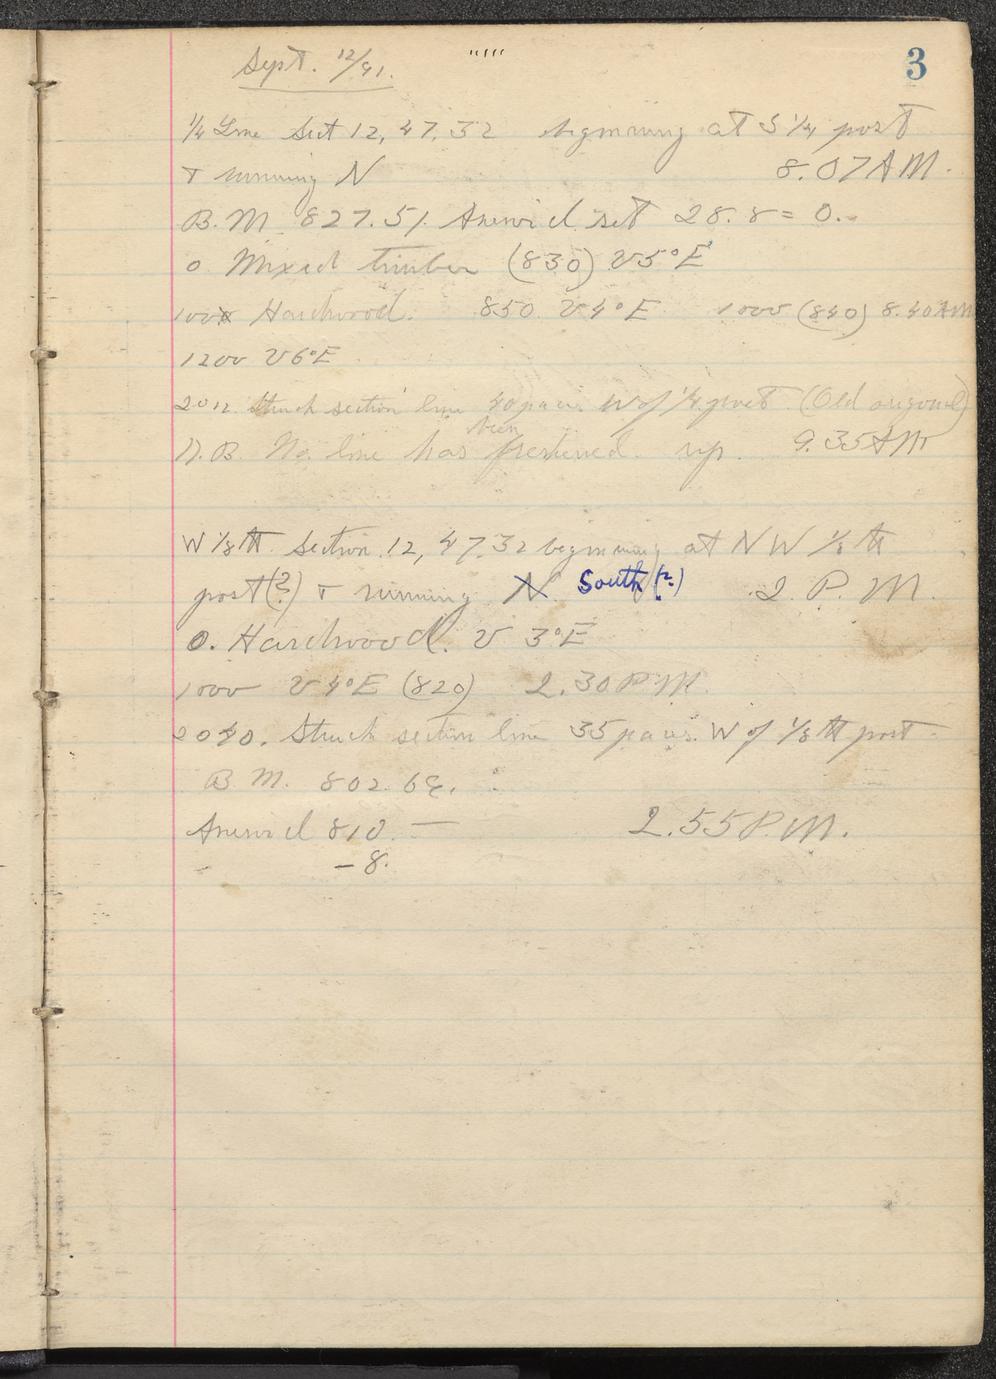 3
Sept. 12/91.
1/4 Line Sect 12, 47, 32 beginning at S 1/4 post
+ running N 8.07 AM.
B.M. 827.51. Aneroid set 28.8 = 0.
0 Mixed timber (830) V5°E
100 Hardwood. 850. V4°E 1000 (840) 8.40 AM
1200 V6°E
2012. Struck section line 40 paces W of 1/4 post. (Old original)
been
N.B. No. line has freshened up. 9.35 AM
W 1/8th Section 12, 47.32 beginning at NW 1/8 th
post(?) + running N South (?) 2 P.M.
0. Hardwood. V 3°E
1000 V4°E (820) 2.30 PM.
2040. Struck section line 35 paces. W of 1/8 th post.
B M. 802.69.
Aneroid 810. — 2.55 P.M.
- 8.